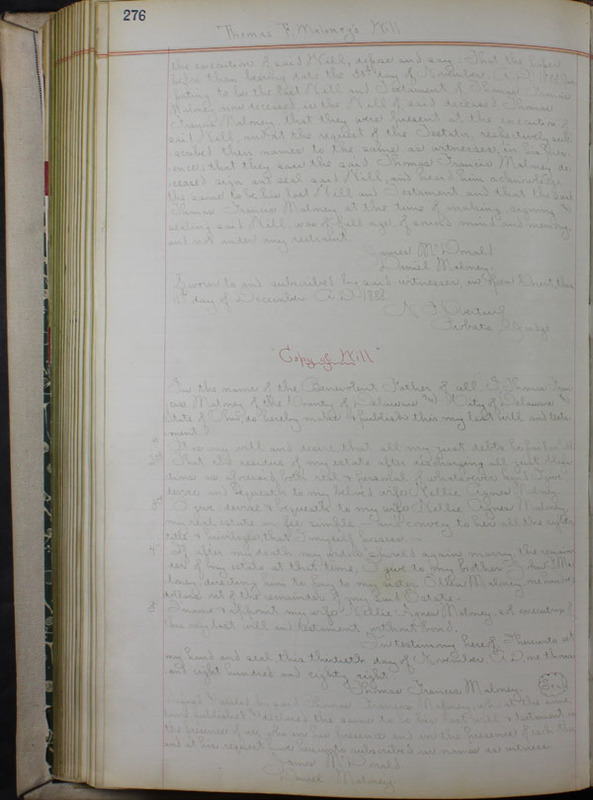 276
Thomas F. Maloney's Will
the execution of said Will, depose and say: That the paper
before them bearing date the 30th day of November A.D. 1888 pur-
porting to be the last Will and Testament of Thomas Francis
Maloney now deceased, is the Will of said deceased Thomas
Francis Maloney, that they were present at the execution of
said Will, and at the request of the Testator, respectively sub-
scribed their names to the same as witnesses, in his pres-
ence; that they saw the said Thomas Francis Maloney de-
ceased sign and seal said Will, and heard him acknowledge
the same to be his last Will and Testament and that the said
Thomas Francis Maloney at the time of making, signing &
sealing said Will, was of full age, of sound mind and memory,
and not under any restraint.
James McDonald
Daniel Maloney.
Sworn to and subscribed by said witnesses, in open Court, this
day of December A.D. 1888.
Probate Judge
"Copy of Will"
In the name of the Benevolent Father of all. I, Thomas Fran-
cis Maloney of the County of Delaware and City of Delaware &
State of Ohio, do hereby make & publish this my last will and testa-
ment.
It is my will and desire that all my just debts be paid
2nd That the residue of my estate after discharging all just
as aforesaid, both real & personal of whatsoever kind I give
devise and bequeath to my beloved wife Nellie Agnes Maloney.
3rd I give, devise & bequeath to my wife Nellie Agnes Maloney
my real estate in fee simple and convey to her all the rights
title & privileges that I myself possess.
4th If after my death my widow should again marry, the remain-
der of my estate at that time, I give to my brother John J. Ma-
loney directing him to pay to my sister Ellen Maloney one hundred
dollars out of the remainder of my said Estate.
5 I name & appoint my wife Nellie Agnes Maloney, sole executrix of
this my last will and testament, without bond.
In testimony hereof I hereunto set
my hand and seal this thirtieth day of November A.D. one thousand
and eight hundred and eighty eight.
Thomas Francis Maloney. Seal
Signed & sealed by said Thomas Francis Maloney, who at the same
time published & declared the same to be his last will & testament in
the presence of us, who in his presence and in the presence of each other
and at his request have hereunto subscribed our names as witness
James McDonald
Daniel Maloney